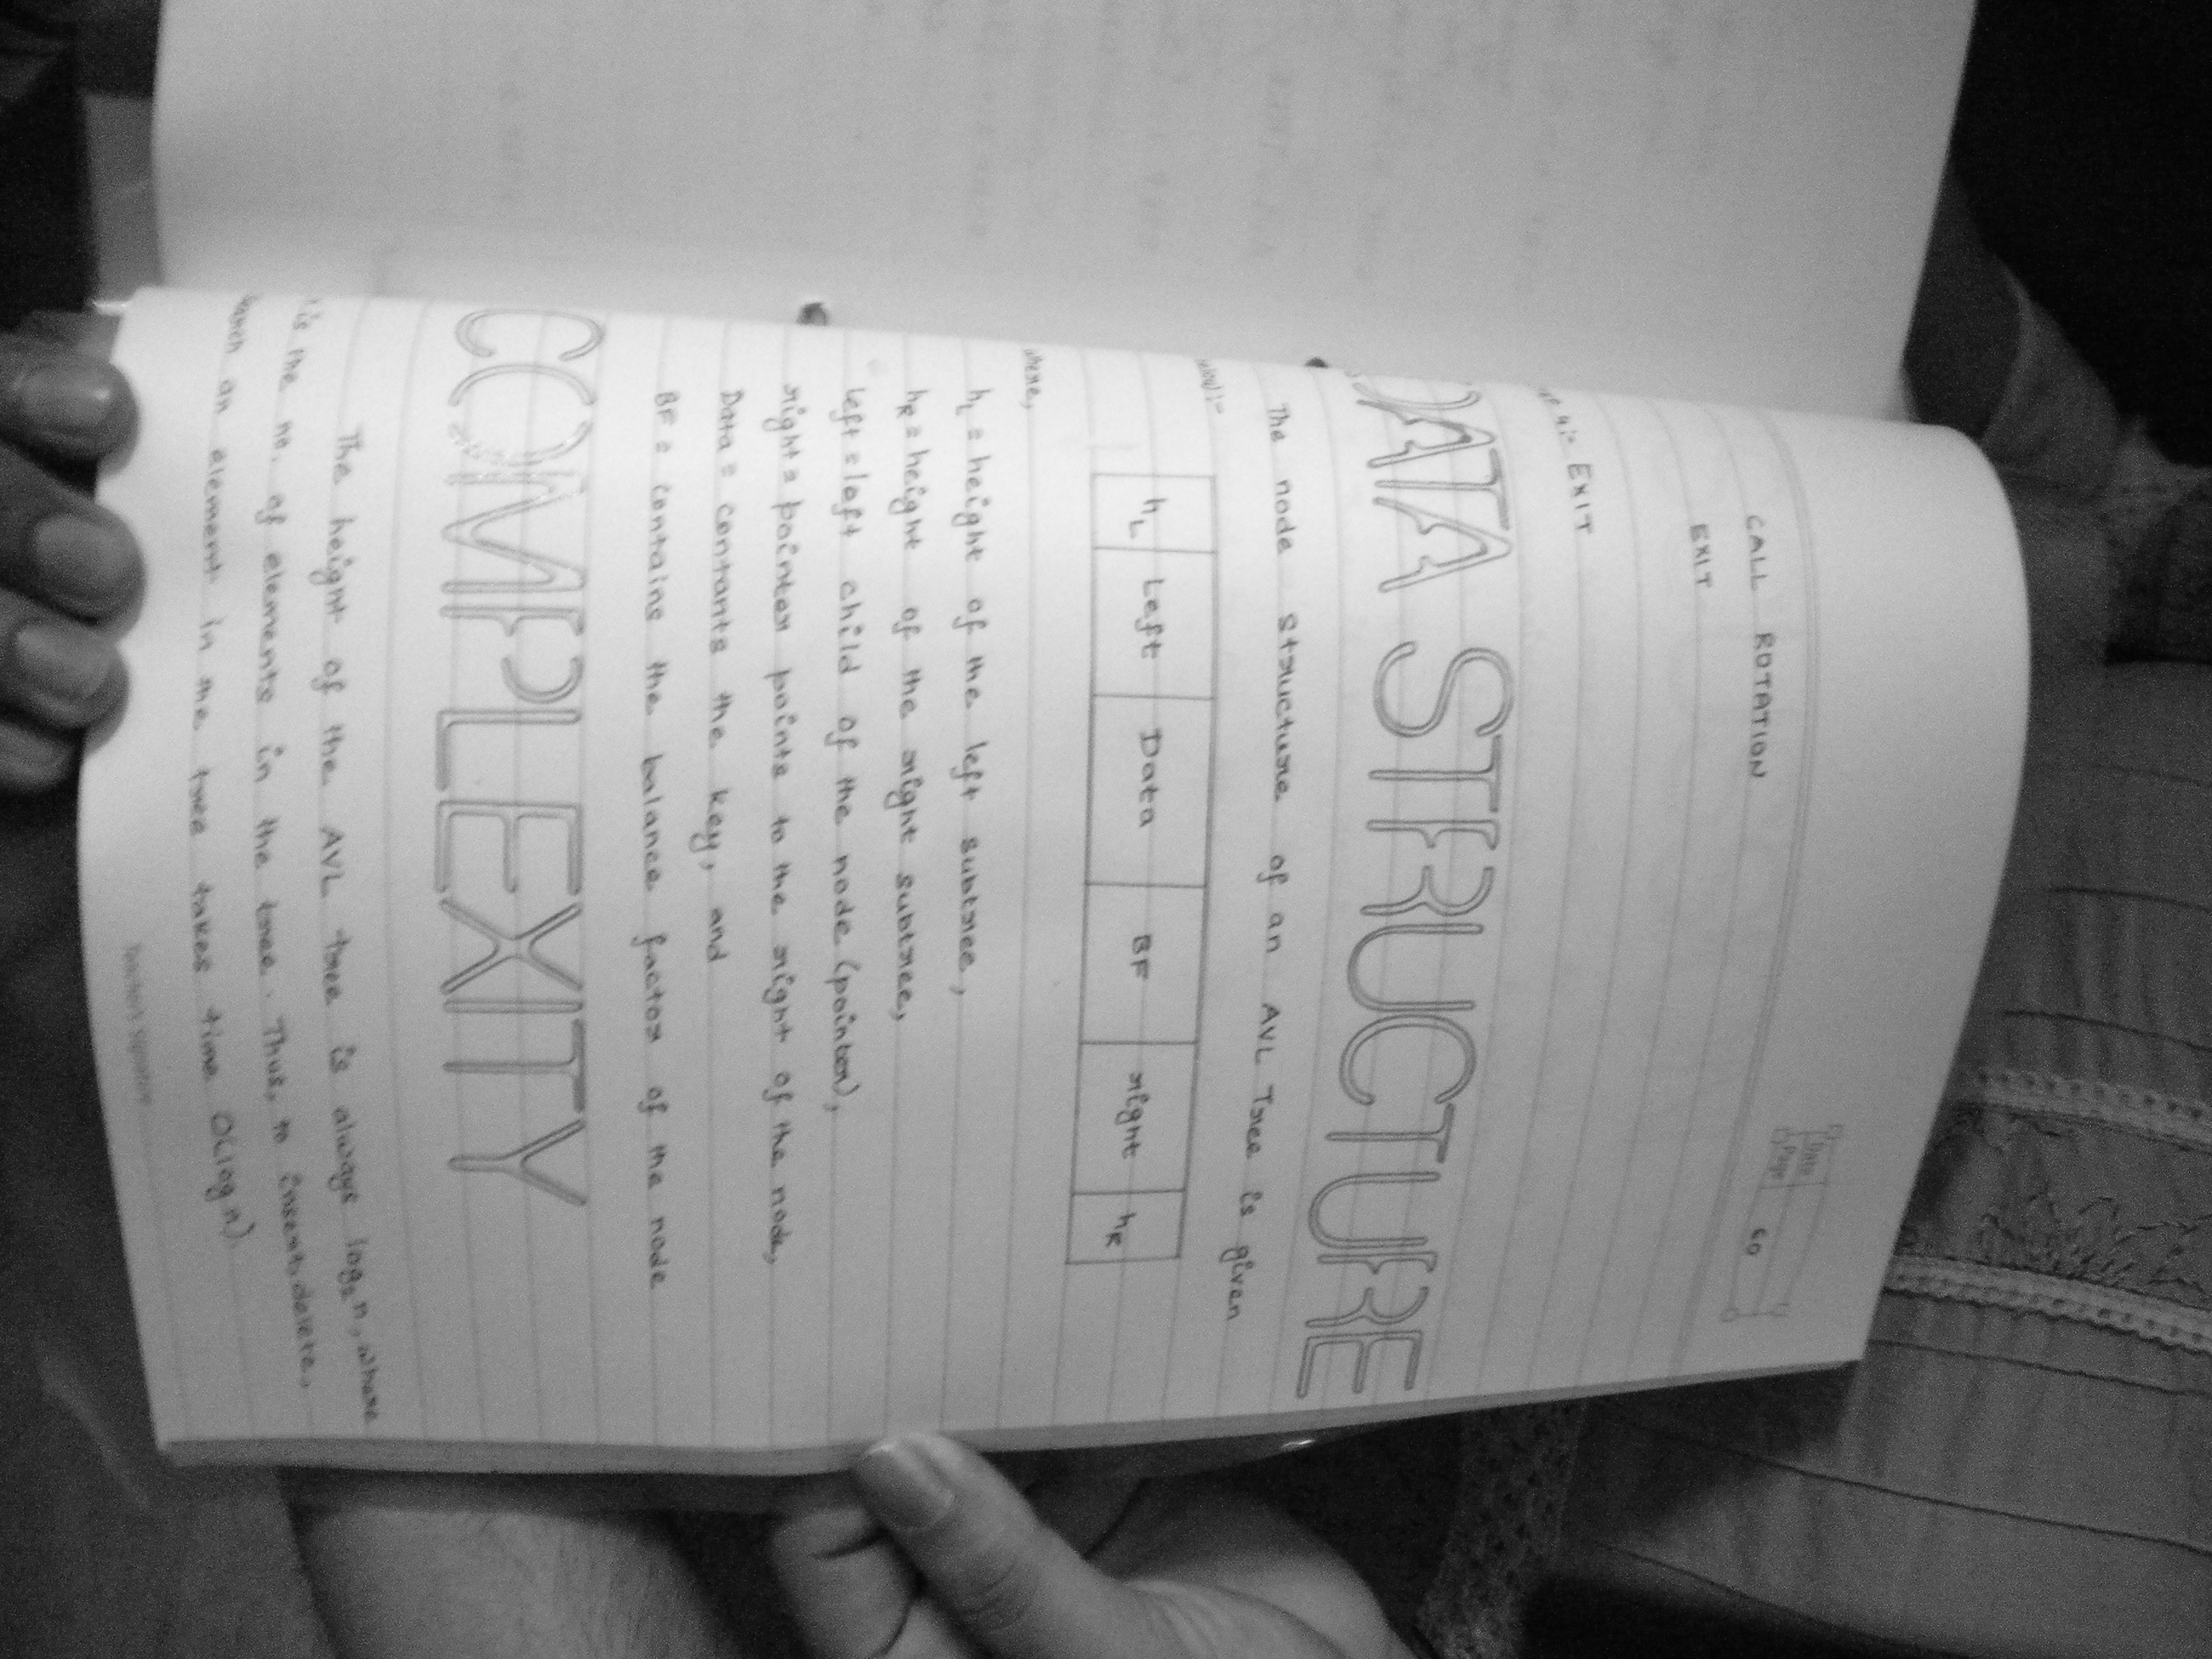 Date
Page 60
CALL ROTATION
EXIT
4:- EXIT
DATA STRUCTURE
The node structure of an AVL Tree is given
:-
hL Left Data BF right hR
where,
hL = height of the left subtree,
hR = height of the right subtree,
left = left child of the node (pointer),
right = pointer points to the right of the node,
Data = contants the key, and
BF = contains the balance factor of the node
COMPLEXITY
The height of the AVL tree is always log2 n, where
is the no. of elements in the tree. Thus, to insert, delete,
search an element in the tree takes time O(log n).
Teacher's Signature